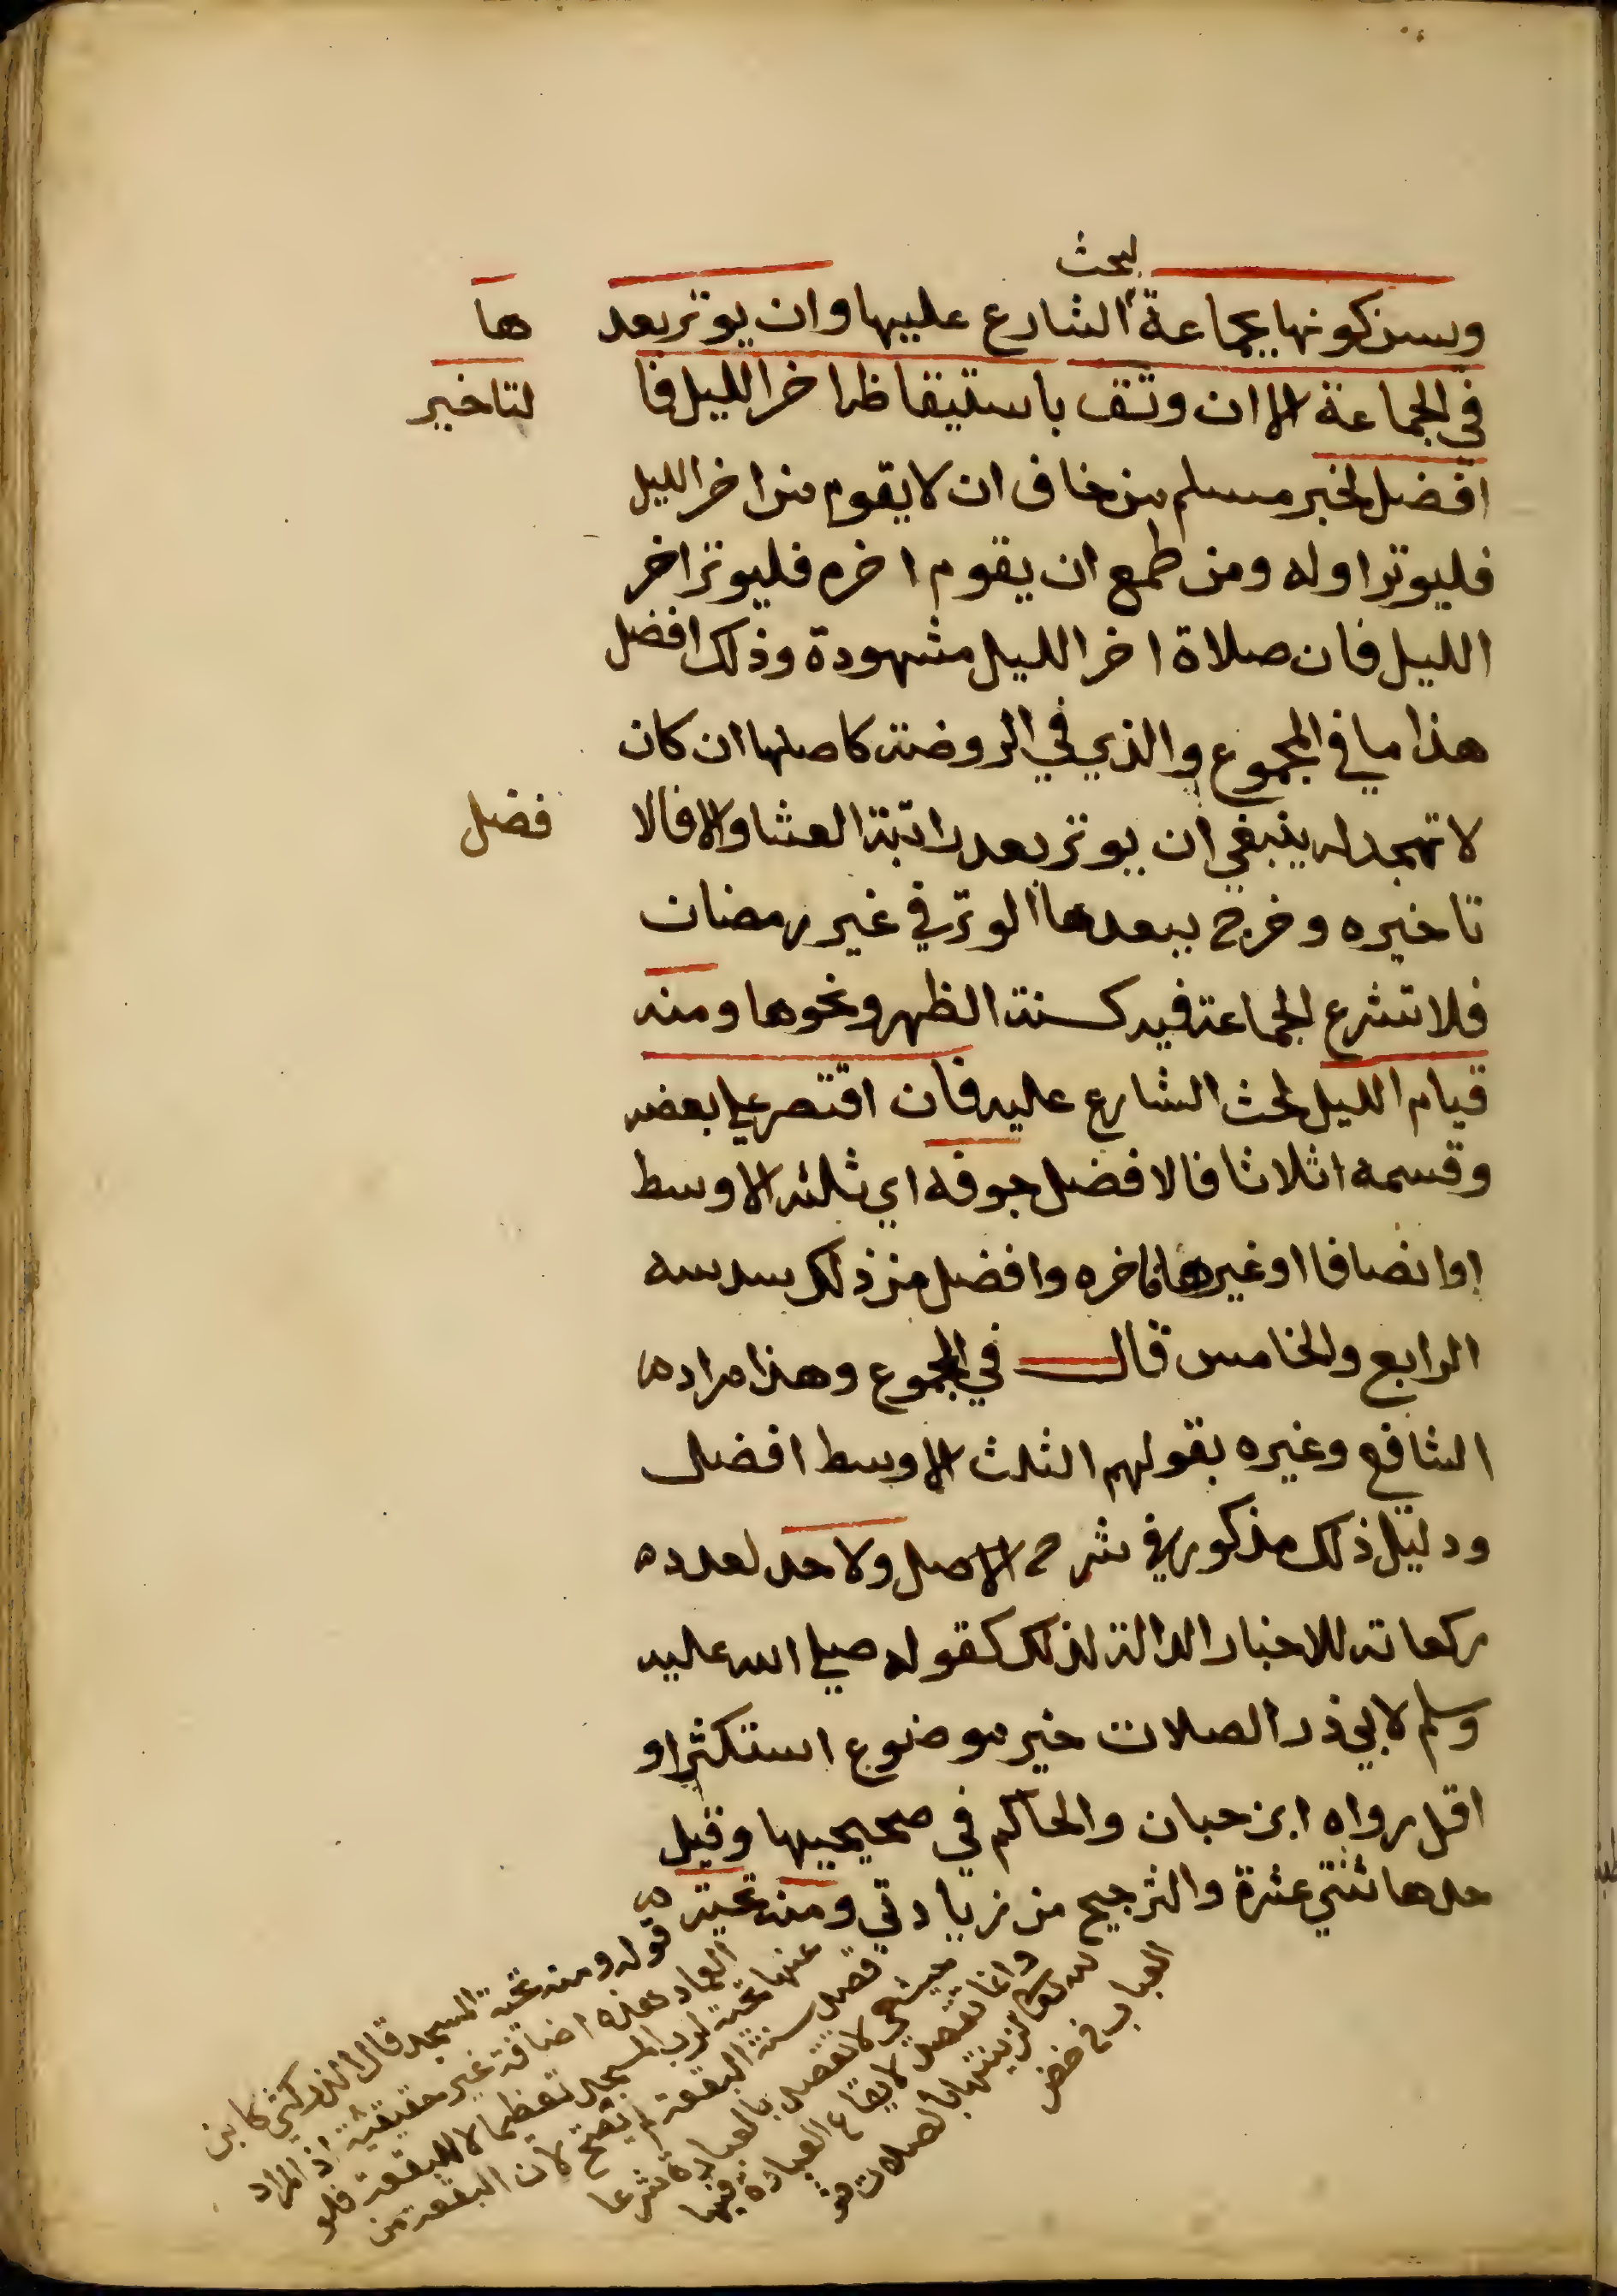 لحث
وسن كونها بجماعة الشارع عليها وان يوتر بعد ها
في الجماعة الا ان وثق باستيقاظه اخر الليل فا لتاخير
افضل لخبر مسلم من خاف ان لا يقوم من اخر الليل
فليوتر اوله ومن طمع ان يقوم اخره فليوتر اخر
الليل فان صلاة اخر الليل مشهودة وذلك افضل
هذا ما في المجموع والذي في الروضة كاصلها ان كان
لا تهجد له ينبغي ان يوتر بعد راتبة العشا والا فالا فضل
تاخيره وخرج ببعدها الوتر في غير رمضان
فلا تشرع الجماعة فيه كسنة الظهر ونحوها ومنه
قيام الليل لحث الشارع عليه فان اقتصر علي بعضه
وقسمه اثلاثا فالافضل جوفه اي ثلثه الاوسط
او انصافا او غيرها فاخره وافضل من ذلك سدسه
الرابع والخامس قال في المجموع وهذا مراد
الشافعي وغيره بقولهم الثلث الاوسط افضل
ودليل ذلك مذكور في شرح الاصل ولا حد لعدد
ركعاته للاخبار الدالة لذلك كقوله صلي الله عليه
وسلم لابي ذر الصلات خير موضوع استكثر او
اقل رواه ابن حبان والحاكم في صحيحيهما وقيل
حدها ثنتي عشرة والترجيح من زيادتي ومنه تحية
قوله ومنه تحية المسجد قال الزركشي كابن
العماد هذه اضافة غير حقيقية اذ المراد
منها تحية لرب المسجد تعظيما لا للبقعة فلو
قصد سنة البقعة لم يصح لان البقعة من
حيث هي لا تقصد بالعبادة شرعا
وانما تقصد لايقاع العبادة فيها
بالصلات
العباب خضر